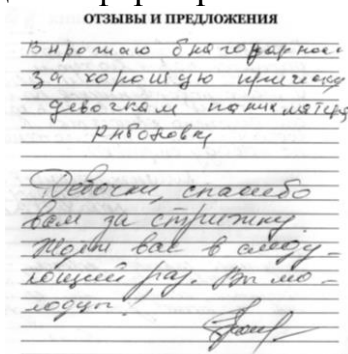 ОТЗЫВЫ И ПРЕДЛОЖЕНИЯ
Вырожаю благодарнос
за хорошую прическу
девочкам парикмахера
Девочки, спасибо
вам за стрижку
Ждите вас в следу-
ющий раз. Вы мо-
лодцы!